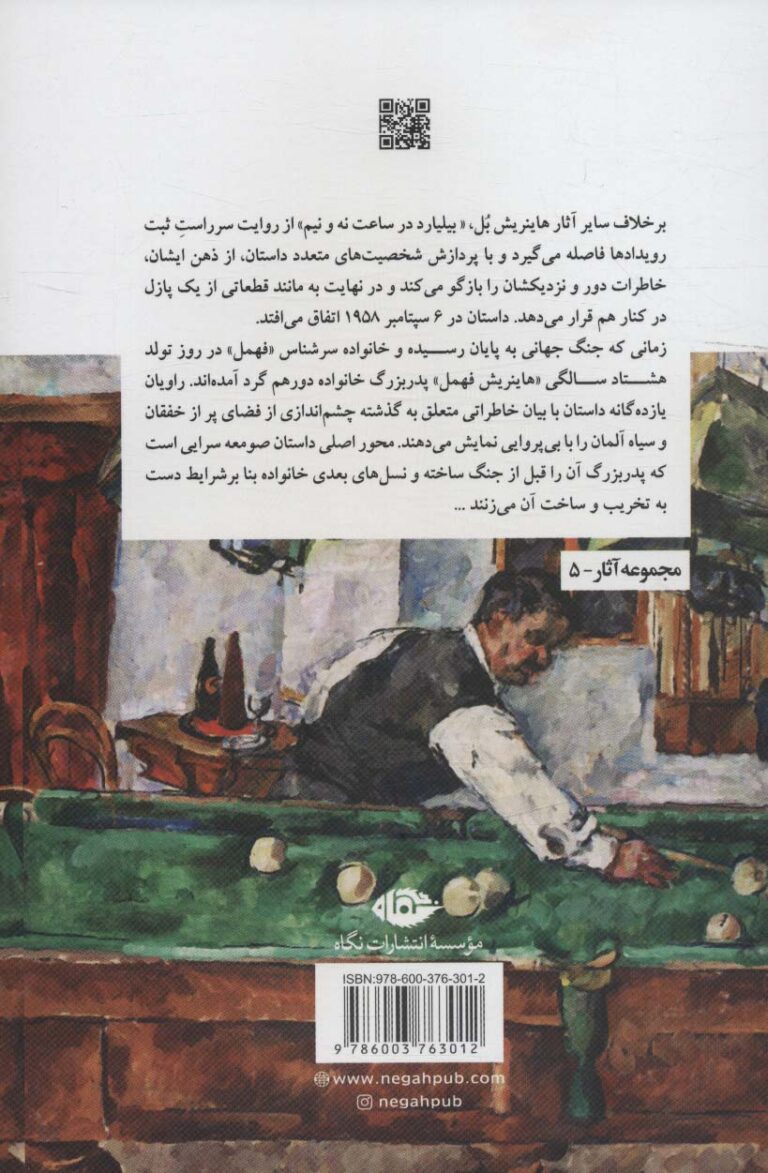 برخلاف سایر آثار هاینریش بُل، «بیلیارد در ساعت نه و نیم» از روایت سرراستِ ثبت
رویدادها فاصله می‌گیرد و با پردازش شخصیت‌های متعدد داستان، از ذهن ایشان،
خاطرات دور و نزدیکشان را بازگو می‌کند و در نهایت به مانند قطعاتی از یک پازل
در کنار هم قرار می‌دهد. داستان در ۶ سپتامبر ۱۹۵۸ اتفاق می‌افتد.
زمانی که جنگ جهانی به پایان رسیده و خانواده سرشناس «فهمل» در روز تولد
هشتاد سالگی «هاینریش فهمل» پدربزرگ خانواده دورهم گرد آمده‌اند. راویان
یازده‌گانه داستان با بیان خاطراتی متعلق به گذشته چشم‌اندازی از فضای پر از خفقان
و سیاه آلمان را با بی‌پروایی نمایش می‌دهند. محور اصلی داستان صومعه سرایی است
که پدربزرگ آن را قبل از جنگ ساخته و نسل‌های بعدی خانواده بنا برشرایط دست
به تخریب و ساخت آن می‌زنند ...
مجموعه آثار - ۵
نگاه
مؤسسهٔ انتشارات نگاه
ISBN:978-600-376-301-2
9 786003 763012
www.negahpub.com
negahpub